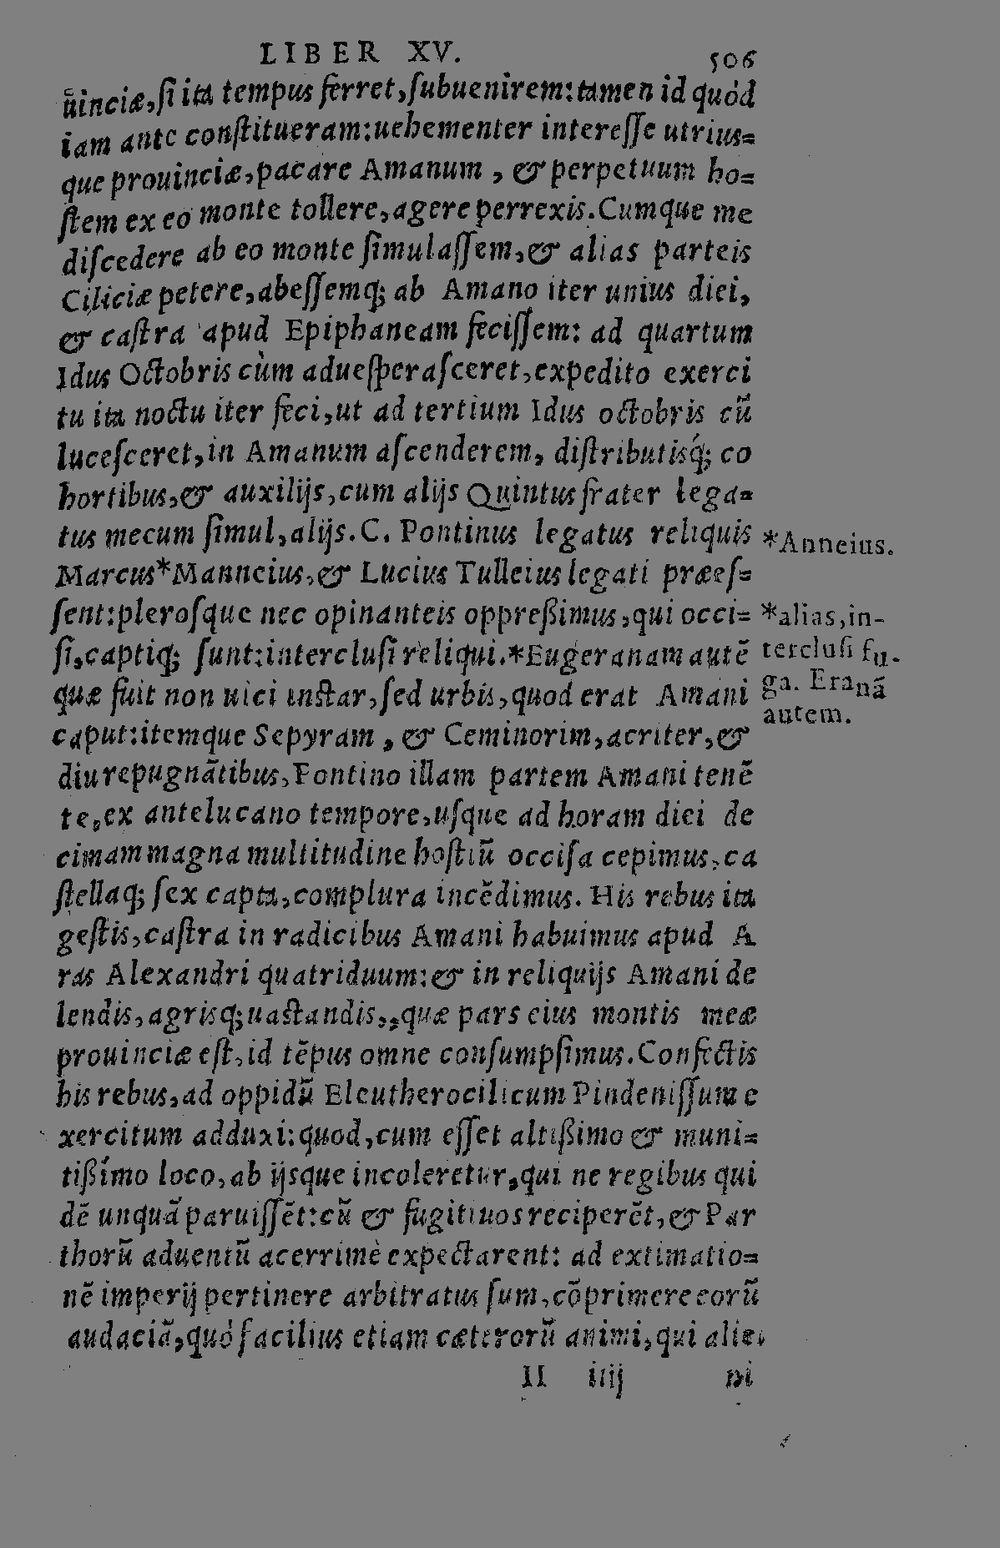 LIBER XV. 506
uinciæ,ſi ita tempus ferret,ſubuenirem:tamen id quòd
iam ante conſtitueram:uehementer intereſſe utrius=
que prouinciæ,pacare Amanum , & perpetuum ho=
ſtem ex eo monte tollere,agere perrexis.Cumque me
diſcedere ab eo monte ſimulaſſem,& alias parteis
Ciliciæ petere,abeſſemq; ab Amano iter unius diei,
& caſtra apud Epiphaneam feciſſem: ad quartum
Idus Octobris cùm adueſperaſceret,expedito exerci
tu ita noctu iter feci,ut ad tertium Idus octobris cũ
luceſceret,in Amanum aſcenderem, diſtributisq́; co
hortibus,& auxilijs,cum alijs Quintus frater lega=
tus mecum ſimul,alijs.C. Pontinus legatus reliquis
*Anneius.
Marcus*Manneius,& Lucius Tulleius legati præeſ=
ſent:pleroſque nec opinanteis oppreßimus,qui occi=
*alias,in-
ſi,captiq; ſunt:intercluſi reliqui.*Eugeranam autẽ
tercluſi fu-
quæ fuit non uici inſtar,ſed urbis,quod erat Amani
ga. Eranã
caput:itemque Sepyram , & Ceminorim,acriter,&
autem.
diu repugnãtibus,Pontino illam partem Amani tenẽ
te,ex antelucano tempore,uſque ad horam diei de
cimam magna multitudine hoſtiũ occiſa cepimus,ca
ſtellaq; ſex capta,complura incẽdimus. His rebus ita
geſtis,caſtra in radicibus Amani habuimus apud A
ras Alexandri quatriduum:& in reliquijs Amani de
lendis,agrisq;uaſtandis,,quæ pars eius montis meæ
prouinciæ eſt,id tẽpus omne conſumpſimus.Confectis
his rebus,ad oppidũ Eleutherocilicum Pindeniſſum e
xercitum adduxi:quod,cum eſſet altißimo & muni=
tißimo loco,ab ijsque incoleretur,qui ne regibus qui
dẽ unquã paruiſſẽt:cũ & fugitiuos reciperẽt,& Par
thorũ aduentũ acerrimè expectarent: ad extimatio=
nẽ imperij pertinere arbitratus ſum,cõprimere eorũ
audaciã,quò facilius etiam cæterorũ animi,qui alie
II iiij ni